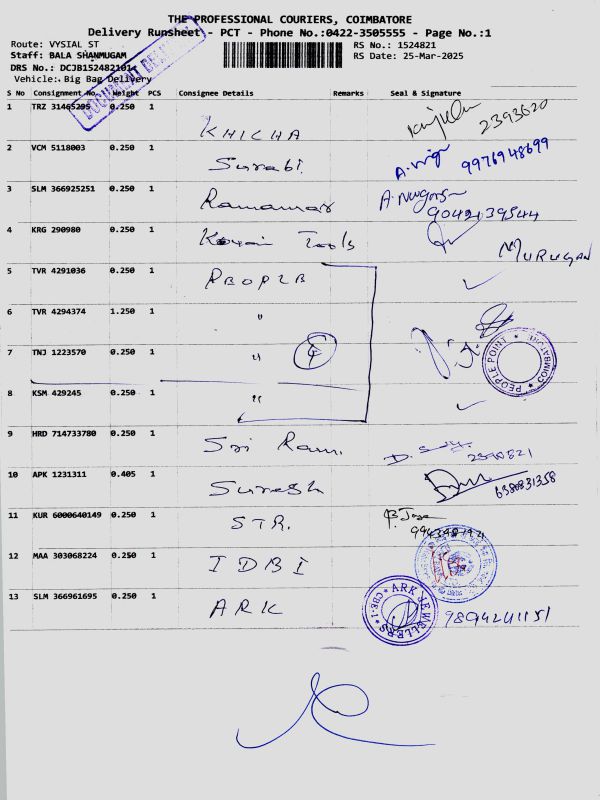 THE PROFESSIONAL COURIERS, COIMBATORE
Delivery Runsheet - PCT - Phone No.:0422-3505555 - Page No.:1
Route: VYSIAL ST
RS No.: 1524821
Staff: BALA SHANMUGAM
RS Date: 25-Mar-2025
DRS No.: DCJB152482101
Vehicle: Big Bag Delivery
S No Consignment No. Weight PCS Consignee Details Remarks Seal & Signature
1 TRZ 31465295 0.250 1 KHICHA 2393620
2 VCM 5118003 0.250 1 Surabi 9976948699
3 SLM 366925251 0.250 1 9042139544
4 KRG 290980 0.250 1 Tools MURUGAN
5 TVR 4291036 0.250 1
6 TVR 4294374 1.250 1 "
7 TNJ 1223570 0.250 1 "
PEOPLE POINT COIMBATORE
8 KSM 429245 0.250 1 "
9 HRD 714733780 0.250 1 Sri Ram. 2390821
10 APK 1231311 0.405 1 Suresh 6380831358
11 KUR 6000640149 0.250 1 STR.
12 MAA 303068224 0.250 1 IDBI
13 SLM 366961695 0.250 1 ARK ARK JEWELLERS CBE-1 9894241151